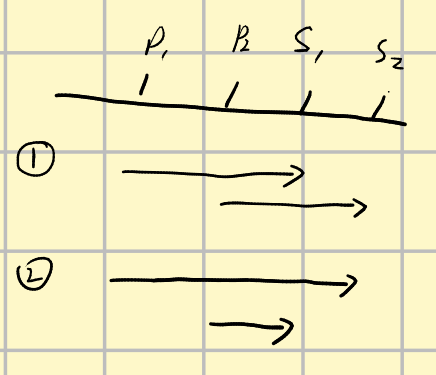 P₁ P₂ S₁ S₂
①
②